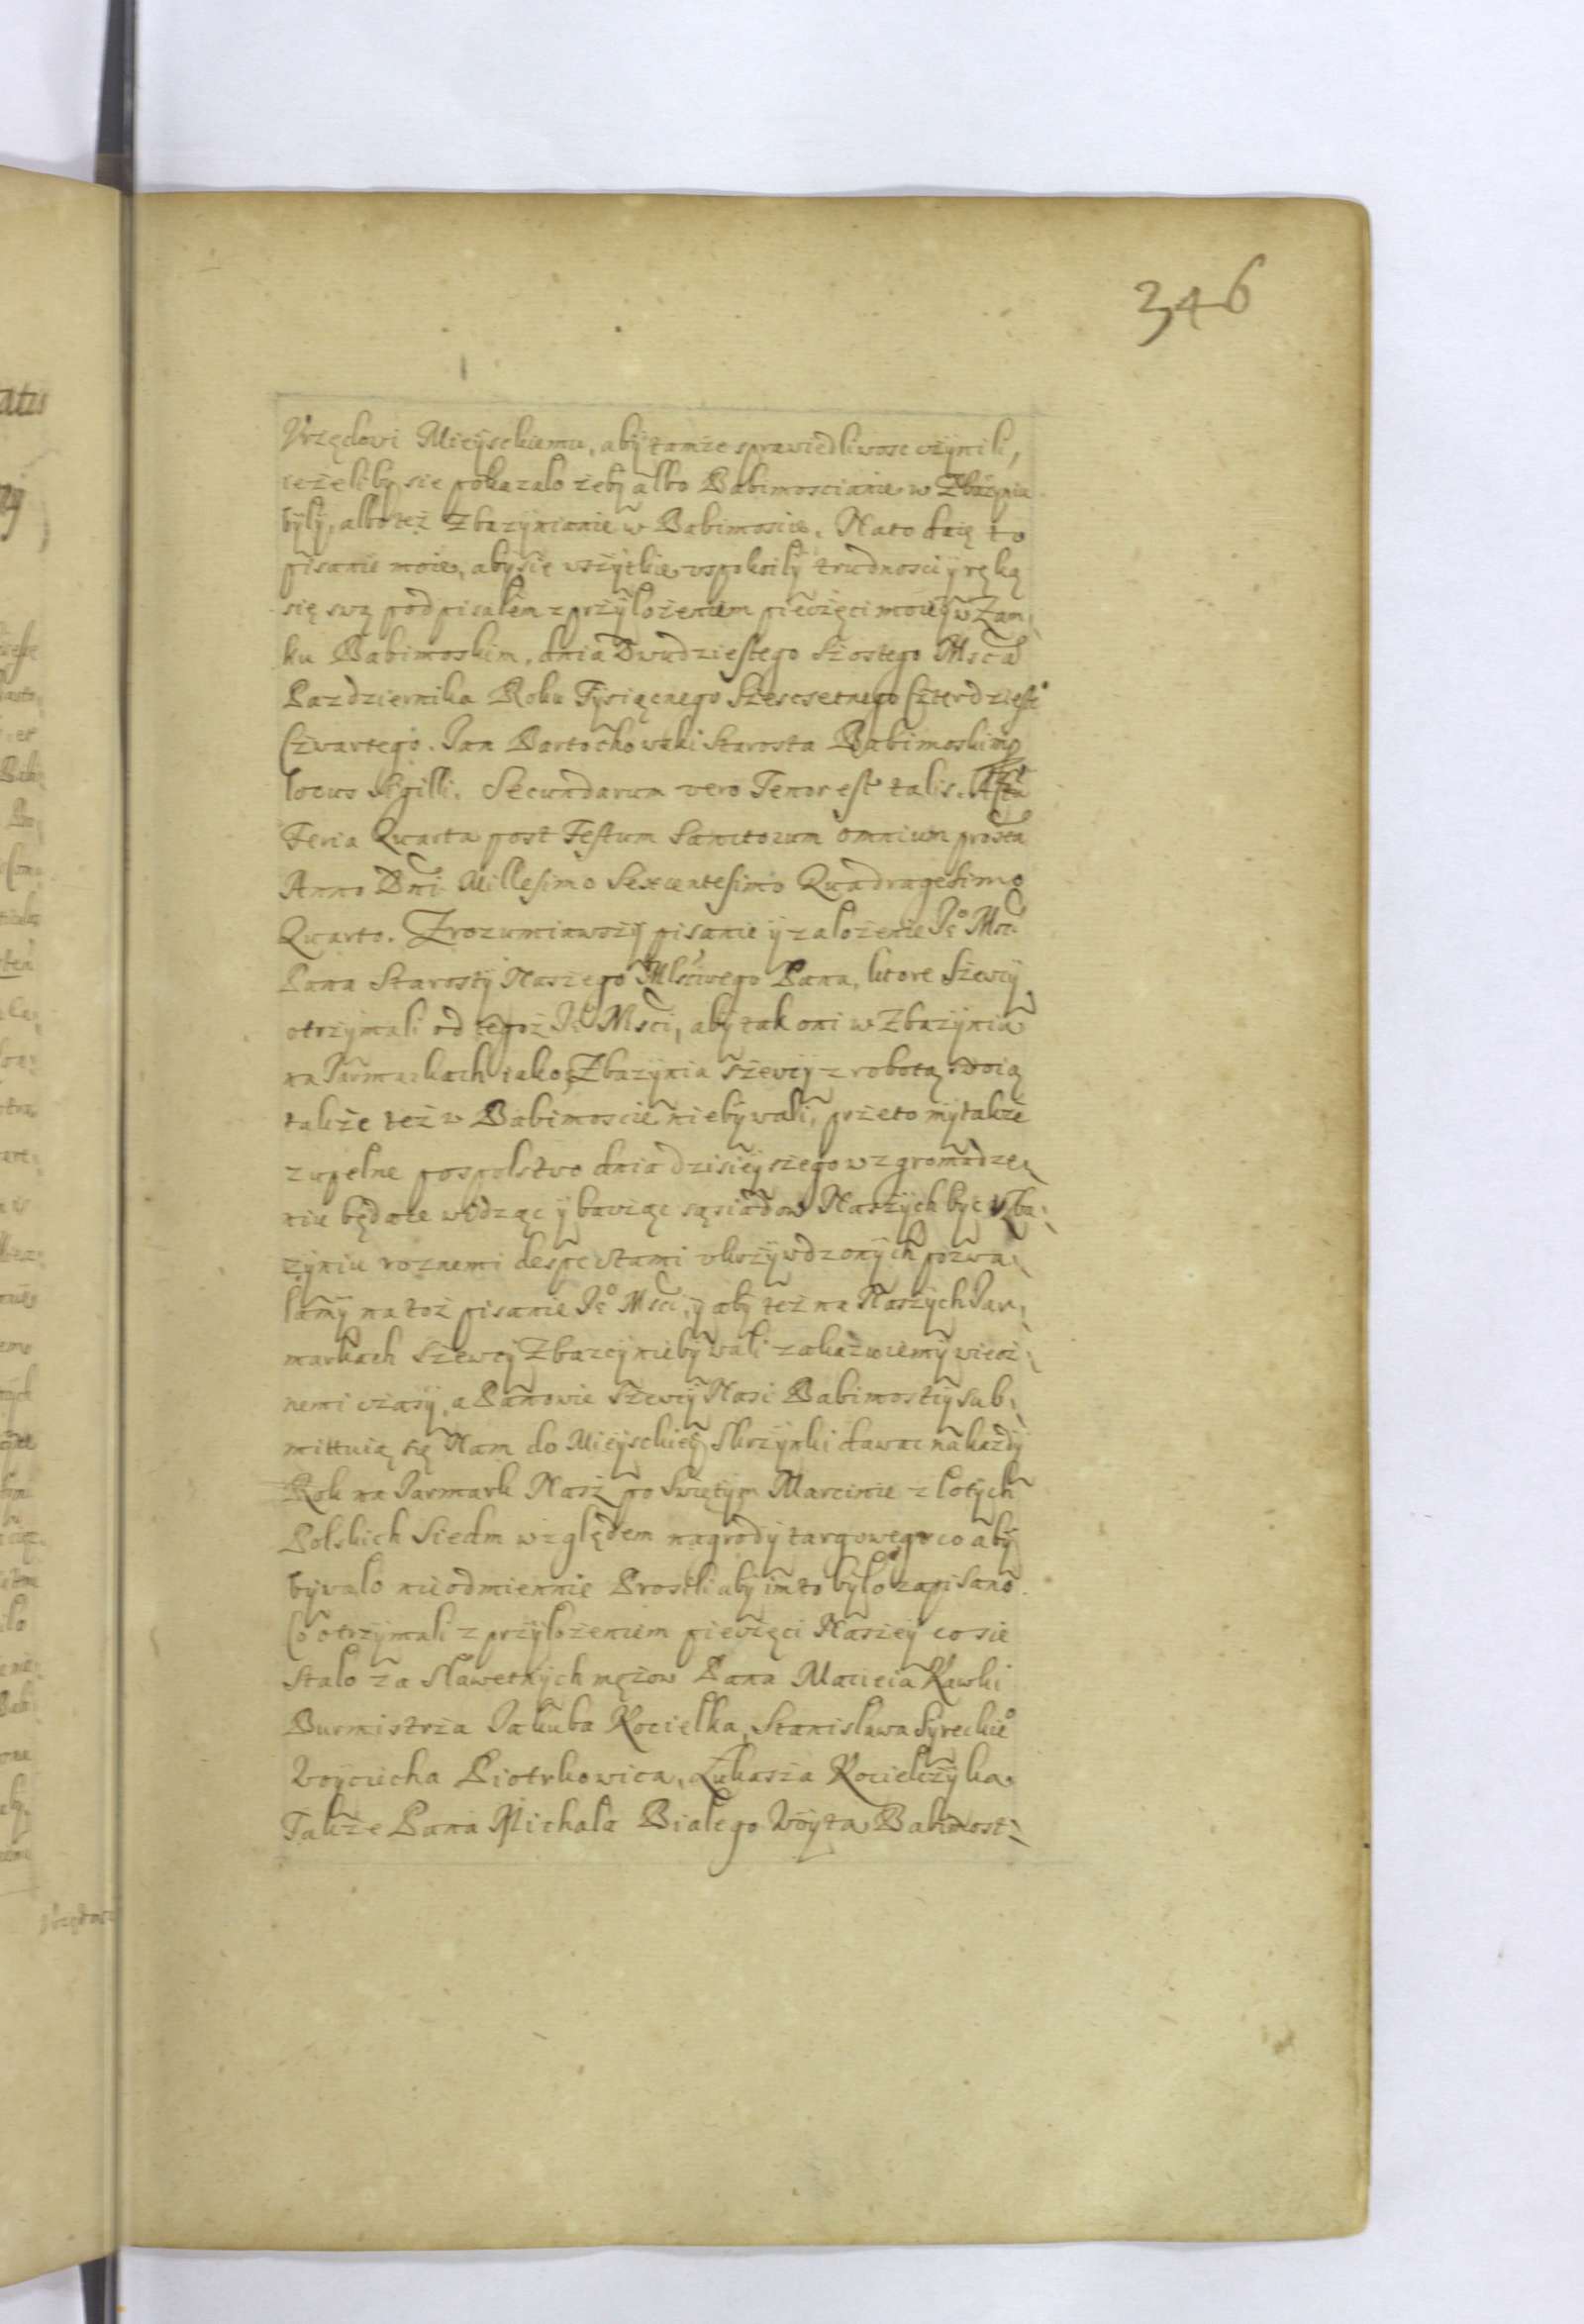 346
Vrzędowi Mieyskiemu, aby tamże sprawiedliwosc vżynili,
ieżeliby sie pokazało żeby albo Babimoscianie w Zbążyniu
były, albo też Zbażynianie w Babimoscie. Na to daię to
pisanie moie, aby się wszytkie vspokoiły trudnosci y ręką
się swą podpisałem z przyłożeniem pieczęci moiey w Zam-
ku Babimoskim, dnia Dwudziestego Szostego Msca
Pazdziernika Roku Tysiącnego Szescsetnego Czterdzieste°
Czwartego. Jan Bartochowski Starosta Babimoski mp
locus sigilli. Secundarum vero Tenor est talis. Actũ
Feria Quarta post Festum Sanctorum omnium prox̃ia
Anno Dni Millesimo Sexcentesimo Quadragesimo
Quarto. Zrozumiawszy pisanie y założenie Je° Msci
Pana Starosty Naszego Mlsciwego Pana, ktore Szewcy
otrzymali od tegoż Je° Msci, aby tak oni w Zbażyniu
na Jarmarkach iako z Zbażynia Szewcy z robotą swoią
także też w Babimoscie nie bywali, przeto my także
zupełne pospolstwo dnia dzisieyszego w zgromadze-
niu będące widząc y bacząc sąsiadow Naszych byc w Zba-
żyniu roznemi despectami vkrzywdzonych pozwa-
lamy na toż pisanie Je° Msci, y aby też na Naszych Jar-
markach Szewcy Zbązcy nie bywali zakazuiemy wiecz-
nemi czasy, a Panowie Szewcy Nasi Babimostcy sub-
mittuią się Nam do Mieyskiey Skrzynki dawac na każdy
Rok na Jarmark Nasz po Swiętym Marcinie złotych
Polskich Siedm względem nagrody targowego co aby
bywało nieodmiennie Prosili aby im to było zapisano.
Co otrzymali z przyłożeniem pieczęci Naszey co sie
stało za Sławetnych mężow Pana Macieia Kawki
Burmistrza Jakuba Kociełka, Stanisława Syreckie°
Woyciecha Piotrkowica, Łukasza Kociełczyka.
Także Pana Michała Białego Woyta Babimost-